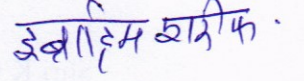 इब्राहिम शरीफ.